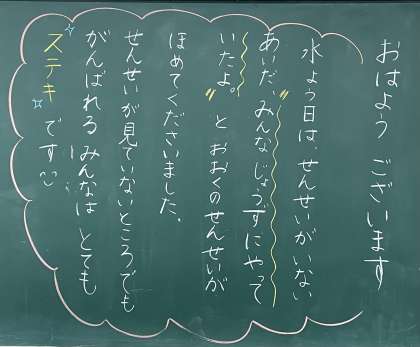 おはよう ございます
水よう日は、せんせいがいない
あいだ、〝みんなじょうずにやって
いたよ。〟と おおくのせんせいが
ほめてくださいました。
せんせいが見ていないところでも
がんばれる みんなは とても
ステキです